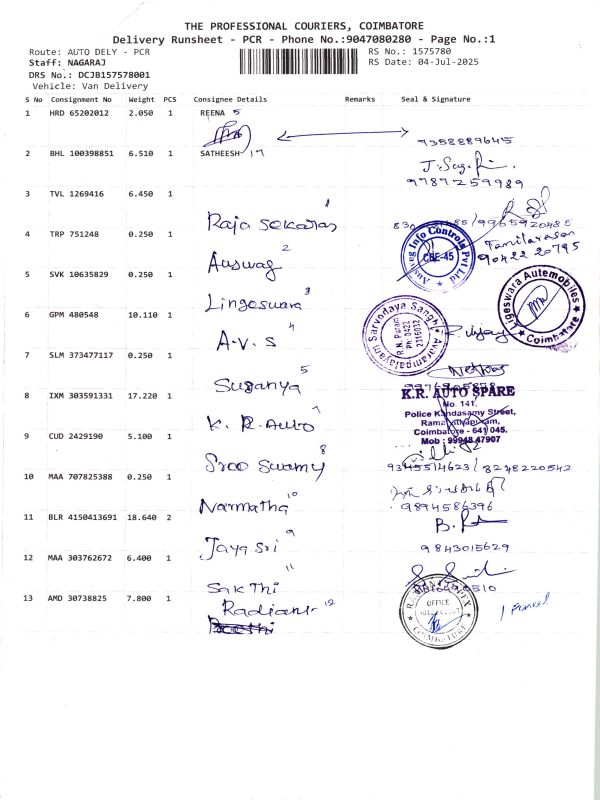 THE PROFESSIONAL COURIERS, COIMBATORE
Delivery Runsheet - PCR - Phone No.:9047080280 - Page No.:1
Route: AUTO DELY - PCR RS No.: 1575780
Staff: NAGARAJ RS Date: 04-Jul-2025
DRS No.: DCJB157578001
Vehicle: Van Delivery
S No Consignment No Weight PCS Consignee Details Remarks Seal & Signature
1 HRD 65202012 2.050 1 REENA 5
7358889645
2 BHL 100398851 6.510 1 SATHEESH 17
9787259989
3 TVL 1269416 6.450 1
Raja sekaran 1 /9965920485
4 TRP 751248 0.250 1
Auswag 2 Auswag Info Controls Pvt Ltd CBE-45 Tamilarasan 90422 20795
5 SVK 10635829 0.250 1
Lingeswara 3 Ligeswara Automobiles Coimbatore
6 GPM 480548 10.110 1
A.V.S 4 Sarvodaya Sangh R.N. Puram Ph: 0422 2316032
7 SLM 373477117 0.250 1
Suganya 5
8 IXM 303591331 17.220 1 K.R. AUTO SPARE
No. 141,
Police Kandasamy Street,
Ramanathapuram,
Coimbatore - 641 045.
Mob : 99948 47907
K. R. Auto 7
9 CUD 2429190 5.100 1
Sree Swamy 8 9345514623/8248220542
10 MAA 707825388 0.250 1
Narmatha 10 9894586396
11 BLR 4150413691 18.640 2
Jaya Sri 9 9843015629
12 MAA 303762672 6.400 1
Sakthi 11
13 AMD 30738825 7.800 1
Radiant 12 OFFICE COIMBATORE